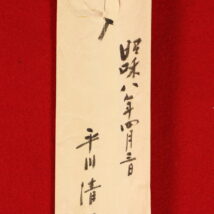 昭和八年四月三日
平川清